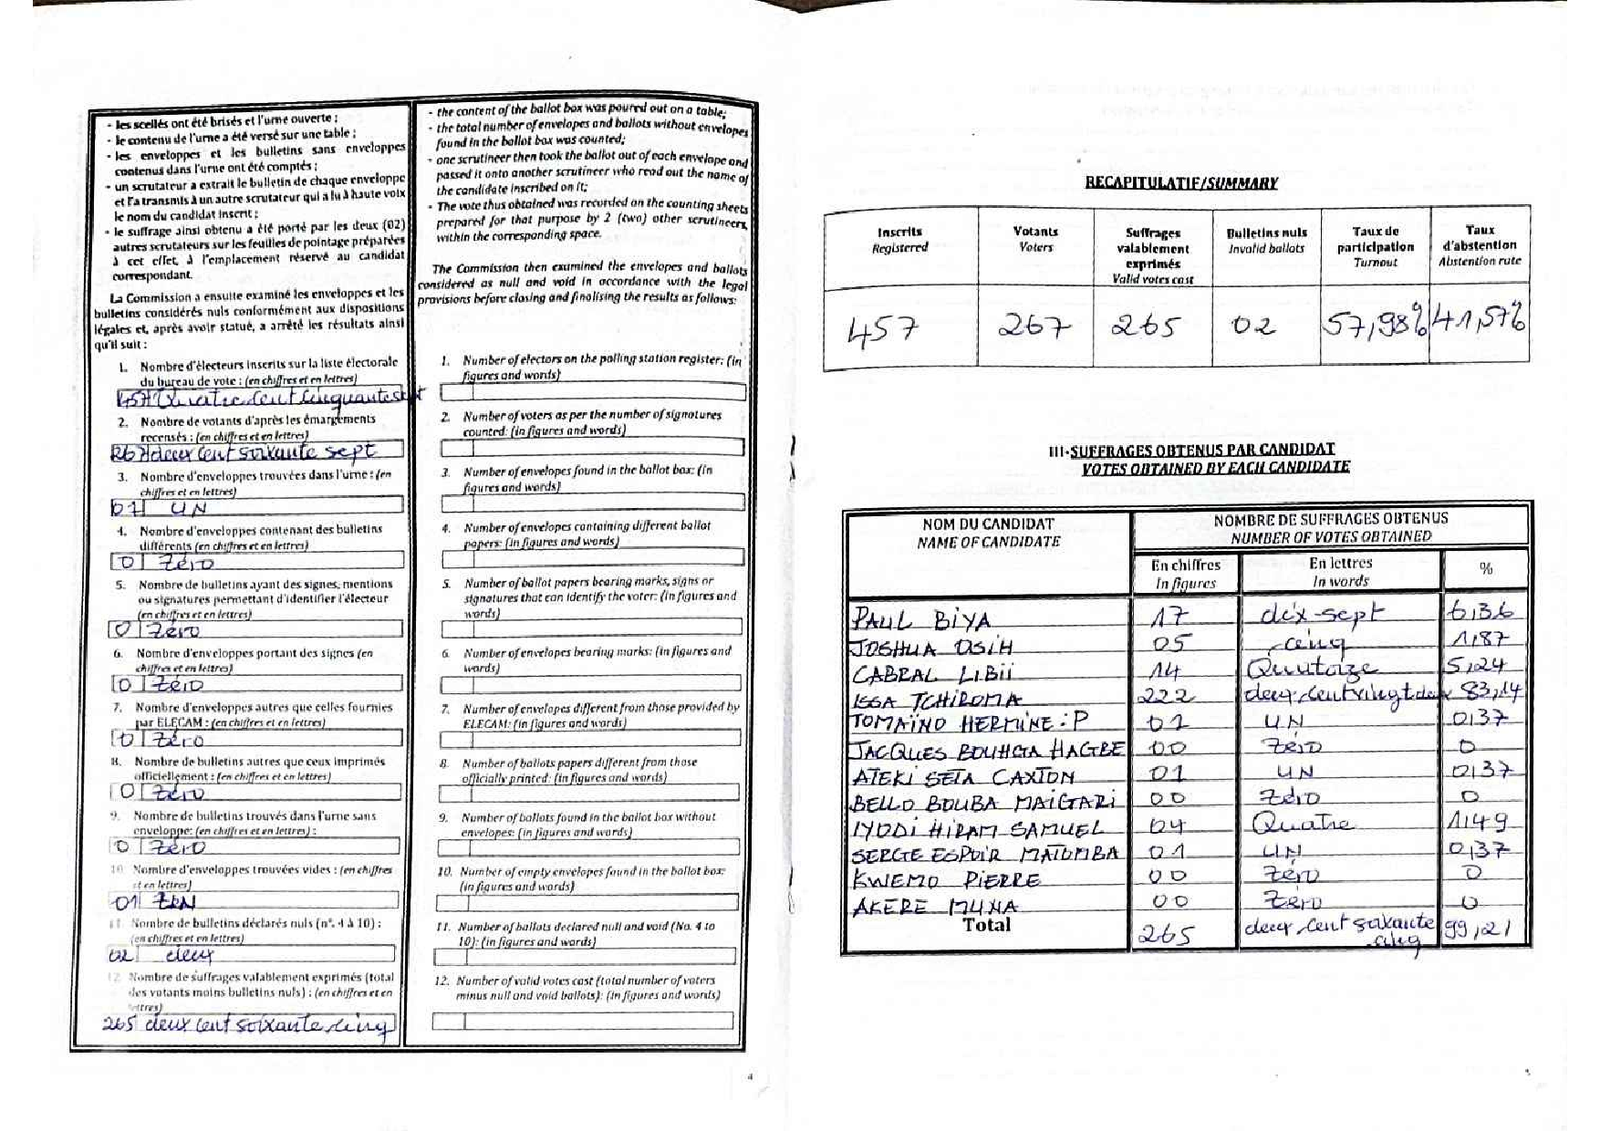 - les scellés ont été brisés et l'urne ouverte ;
- le contenu de l'urne a été versé sur une table ;
- les enveloppes et les bulletins sans enveloppes
contenus dans l'urne ont été comptés ;
- un scrutateur a extrait le bulletin de chaque enveloppe
et l'a transmis à un autre scrutateur qui a lu à haute voix
le nom du candidat inscrit ;
- le suffrage ainsi obtenu a été porté par les deux (02)
autres scrutateurs sur les feuilles de pointage préparées
à cet effet, à l'emplacement réservé au candidat
correspondant.
La Commission a ensuite examiné les enveloppes et les
bulletins considérés nuls conformément aux dispositions
légales et, après avoir statué, a arrêté les résultats ainsi
qu'il suit :
1. Nombre d'électeurs inscrits sur la liste électorale
du bureau de vote : (en chiffres et en lettres)
457 Quatre cent cinquante sept
2. Nombre de votants d'après les émargements
recensés : (en chiffres et en lettres)
267 deux cent soixante sept
3. Nombre d'enveloppes trouvées dans l'urne : (en
chiffres et en lettres)
01 UN
4. Nombre d'enveloppes contenant des bulletins
différents (en chiffres et en lettres)
0 Zéro
5. Nombre de bulletins ayant des signes, mentions
ou signatures permettant d'identifier l'électeur
(en chiffres et en lettres)
0 Zéro
6. Nombre d'enveloppes portant des signes (en
chiffres et en lettres)
0 Zéro
7. Nombre d'enveloppes autres que celles fournies
par ELECAM : (en chiffres et en lettres)
0 Zéro
8. Nombre de bulletins autres que ceux imprimés
officiellement : (en chiffres et en lettres)
0 Zéro
9. Nombre de bulletins trouvés dans l'urne sans
enveloppe: (en chiffres et en lettres) :
0 Zéro
10 Nombre d'enveloppes trouvées vides : (en chiffres
et en lettres)
01
11. Nombre de bulletins déclarés nuls (n°. 4 à 10) :
(en chiffres et en lettres)
02 deux
12. Nombre de suffrages valablement exprimés (total
des votants moins bulletins nuls) : (en chiffres et en
lettres)
265 deux cent soixante cinq
- the content of the ballot box was poured out on a table;
- the total number of envelopes and ballots without envelopes
found in the ballot box was counted;
- one scrutineer then took the ballot out of each envelope and
passed it onto another scrutineer who read out the name of
the candidate inscribed on it;
- The vote thus obtained was recorded on the counting sheets
prepared for that purpose by 2 (two) other scrutineers,
within the corresponding space.
The Commission then examined the envelopes and ballots
considered as null and void in accordance with the legal
provisions before closing and finalising the results as follows:
1. Number of electors on the polling station register: (in
figures and words)
2. Number of voters as per the number of signatures
counted: (in figures and words)
3. Number of envelopes found in the ballot box: (in
figures and words)
4. Number of envelopes containing different ballot
papers: (in figures and words)
5. Number of ballot papers bearing marks, signs or
signatures that can identify the voter: (in figures and
words)
6. Number of envelopes bearing marks: (in figures and
words)
7. Number of envelopes different from those provided by
ELECAM: (in figures and words)
8. Number of ballots papers different from those
officially printed: (in figures and words)
9. Number of ballots found in the ballot box without
envelopes: (in figures and words)
10. Number of empty envelopes found in the ballot box:
(in figures and words)
11. Number of ballots declared null and void (No. 4 to
10): (in figures and words)
12. Number of valid votes cast (total number of voters
minus null and void ballots): (in figures and words)
4
RECAPITULATIF/SUMMARY
Inscrits Registered
Votants Voters
Suffrages valablement exprimés Valid votes cast
Bulletins nuls Invalid ballots
Taux de participation Turnout
Taux d'abstention Abstention rate
457 267 265 02 57,98% 41,57%
III-SUFFRAGES OBTENUS PAR CANDIDAT
VOTES OBTAINED BY EACH CANDIDATE
NOM DU CANDIDAT NOMBRE DE SUFFRAGES OBTENUS
NAME OF CANDIDATE NUMBER OF VOTES OBTAINED
En chiffres En lettres %
In figures In words
PAUL BIYA 17 dix-sept 6,36
JOSHUA OSIH 05 cinq 1,87
CABRAL LIBII 14 Quatorze 5,24
ISSA TCHIROMA 222 deux cent vingt deux 83,14
TOMAINO HERMINE : P 01 UN 0,37
JACQUES BOUHGA HAGBE 00 Zéro 0
ATEKI SETA CAXTON 01 UN 0,37
BELLO BOUBA MAIGARI 00 Zéro 0
IYODI HIRAM SAMUEL 04 Quatre 1,49
SERGE ESPOIR MATOMBA 01 UN 0,37
KWEMO PIERRE 00 Zéro 0
AKERE MUNA 00 Zéro 0
Total 265 deux cent soixante cinq 99,21